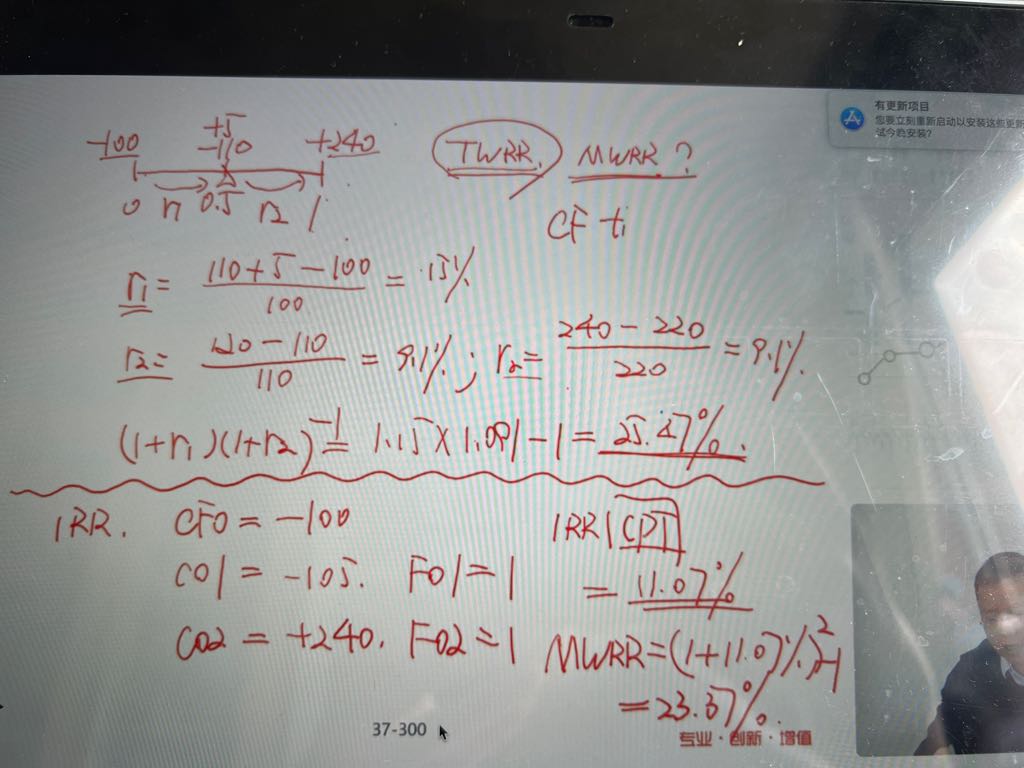 有更新项目
您要立刻重新启动以安装这些更新
试今晚安装?
+5
-100 -110 +240
0 r1 0.5 r2 1
TWRR. MWRR?
CF ti
r1 = (110+5-100)/100 = 15%
r2 = (120-110)/110 = 9.1%; r2 = (240-220)/220 = 9.1%.
(1+r1)(1+r2)-1 = 1.15×1.091-1 = 25.47%.
IRR. CF0 = -100 IRR|CPT
C01 = -105. F01=1 = 11.07%
C02 = +240. F02=1 MWRR=(1+11.07%)²-1
= 23.37%.
37-300
专业·创新·增值